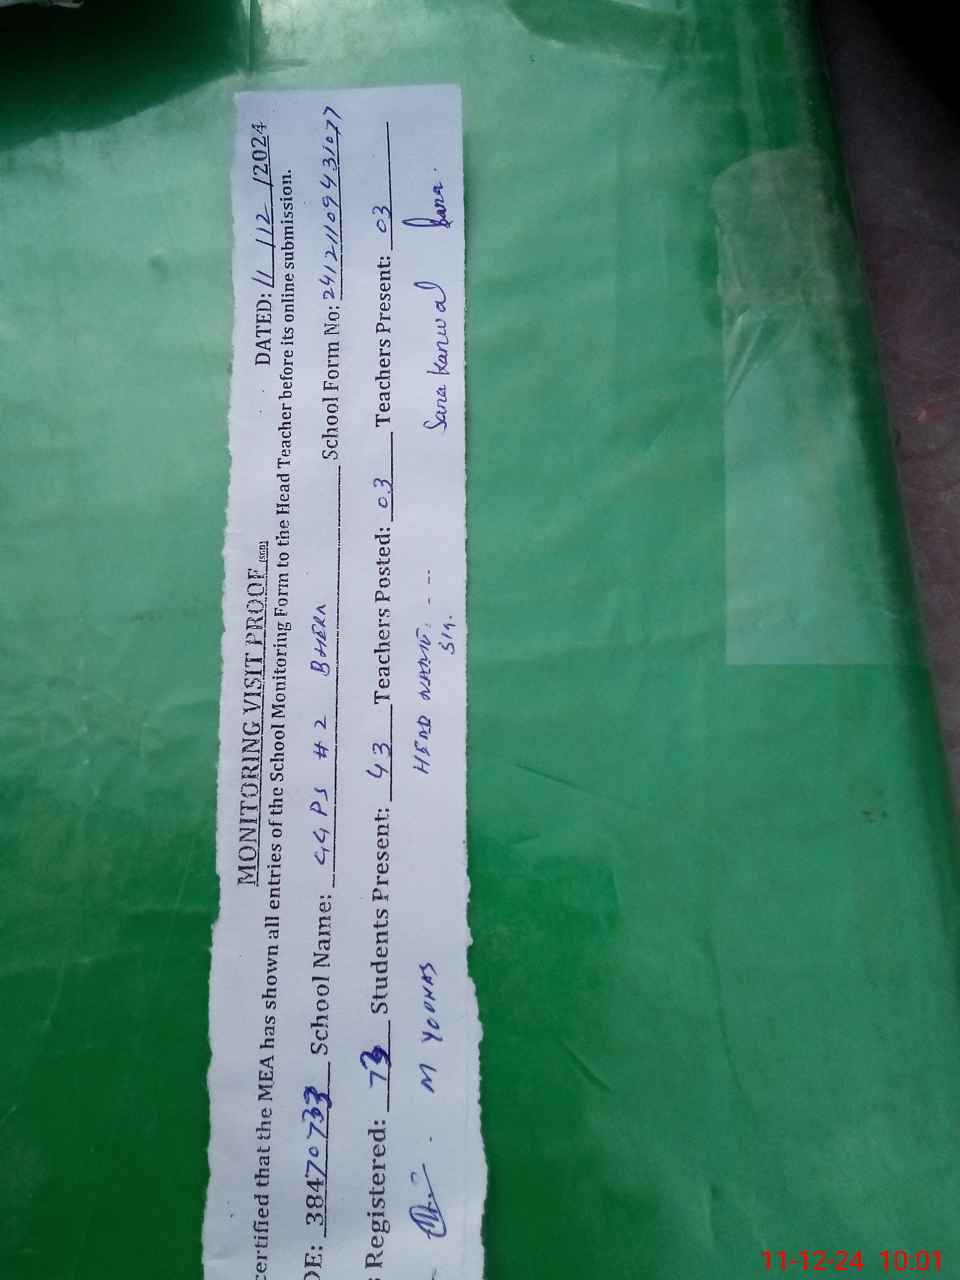 MONITORING VISIT PROOF (SGD) DATED: 11/12/2024
certified that the MEA has shown all entries of the School Monitoring Form to the Head Teacher before its online submission.
DE: 38470733 School Name: GGPS # 2 BHERA School Form No: 24121109431077
s Registered: 73 Students Present: 43 Teachers Posted: 03 Teachers Present: 03
M YOUNAS HEAD NAME: -- Sara Kanwal Sara.
SIG.
11-12-24 10.01